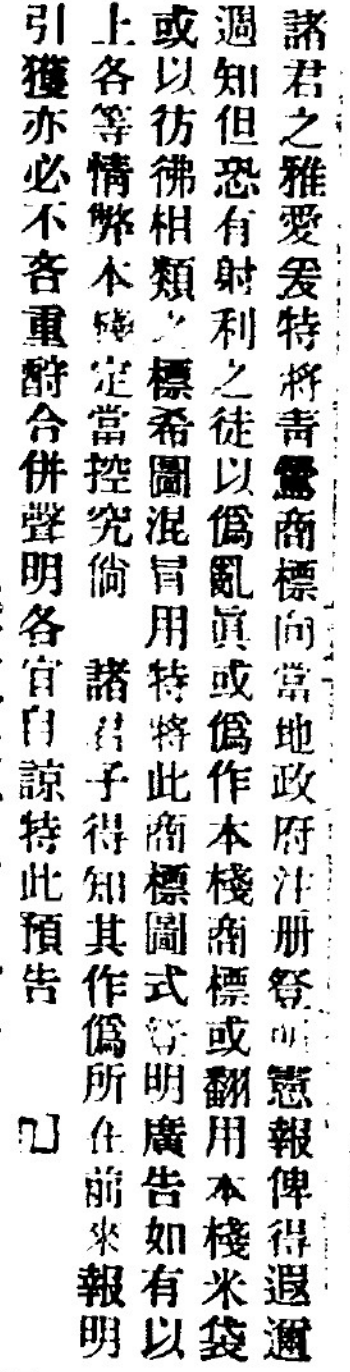 諸君之雅愛爰特將青鸞商標向當地政府註册登明憲報俾得遐邇
過知但恐有射利之徒以僞亂眞或僞作本棧商標或翻用本棧米袋
或以彷彿相類之標希圖混冒用特將此商標圖式登明廣告如有以
上各等情弊本棧定當控究倘　諸君子得知其作僞所在前來報明
引獲亦必不吝重酧合併聲明各宜自諒特此預告